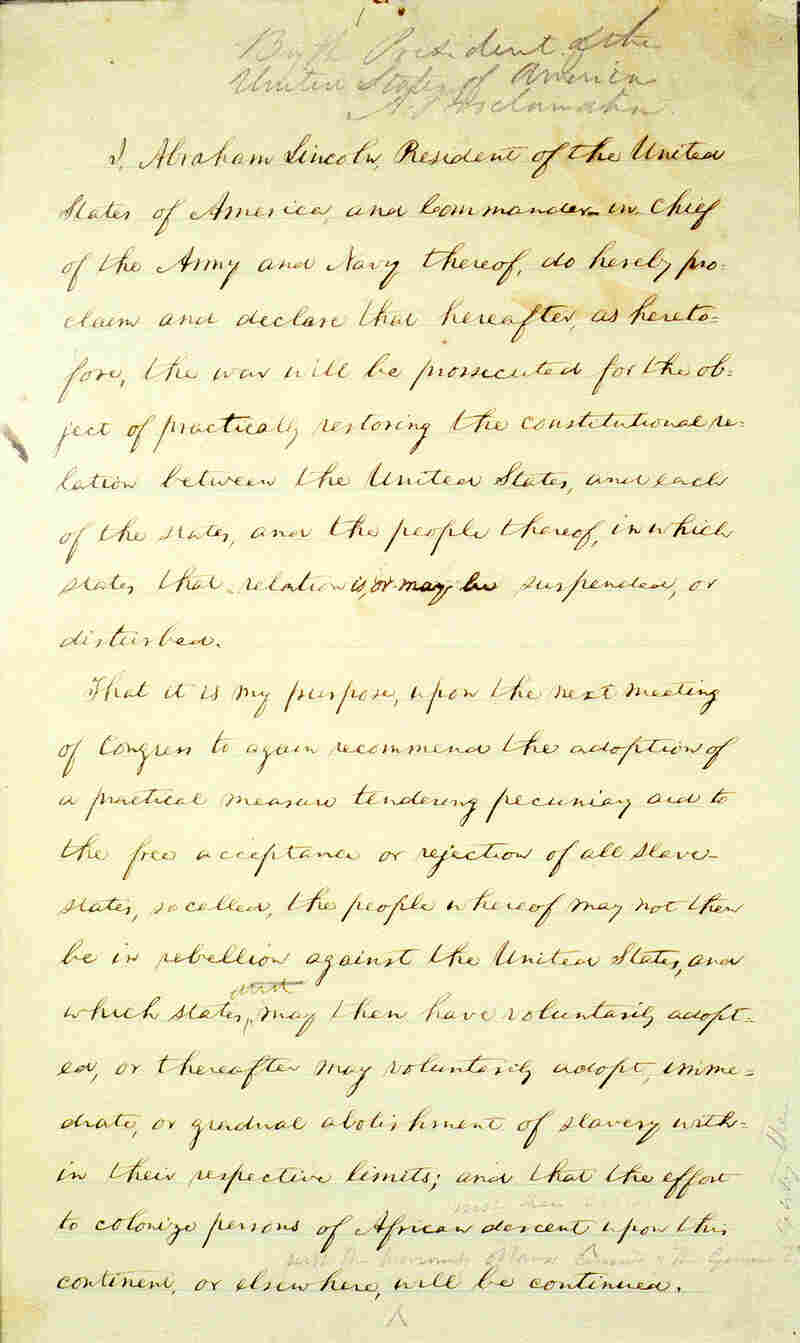 By the President of the
United States of America
A Proclamation.
I, Abraham Lincoln, President of the United
States of America, and Commander-in-Chief
of the Army and Navy thereof, do hereby pro-
claim and declare that hereafter, as hereto-
fore, the war will be prosecuted for the ob-
ject of practically restoring the constitutional re-
lation between the United States, and each
of the states, and the people thereof, in which
states that relation is, or may be suspended, or
disturbed.
That it is my purpose, upon the next meeting
of Congress to again recommend the adoption of
a practical measure tendering pecuniary aid to
the free acceptance or rejection of all slave-
states, so called, the people whereof may not then
be in rebellion against the United States, and
and
which states, may then have voluntarily adopt-
ed, or thereafter may voluntarily adopt, imme-
diate, or gradual abolishment of slavery with-
in their respective limits; and that the effort
to colonize persons of African descent upon this
continent, or elsewhere, will be continued.